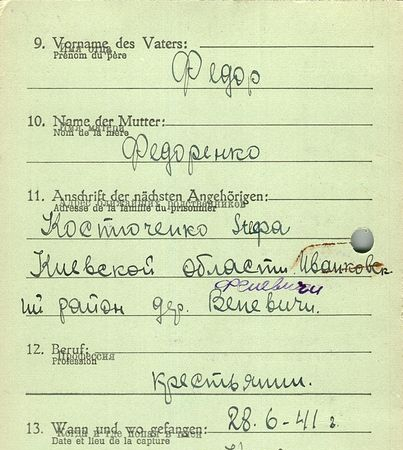 9. Vorname des Vaters:
Имя отца
Prénom du père
Федор
10. Name der Mutter:
Имя матери
Nom de la mère
Федоренко
11. Anschrift der nächsten Angehörigen:
Адрес ближайших родственников
Adresse de la famille du prisonnier
Костюченко Stepa
Киевской области Иванковск
ий район дер. Веневичи.
Феневичи
12. Beruf:
Профессия
Profession
Крестьянин.
13. Wann und wo gefangen:
Когда и где попал в плен
Date et lieu de la capture
28.6-41 г.